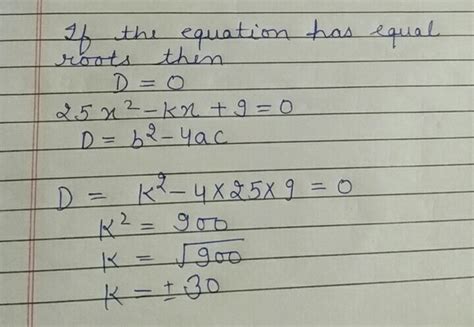 If the equation has equal
roots then
D = 0
25x² - kx + 9 = 0
D = b² - 4ac
D = K² - 4 × 25 × 9 = 0
K² = 900
K = √900
K = ± 30